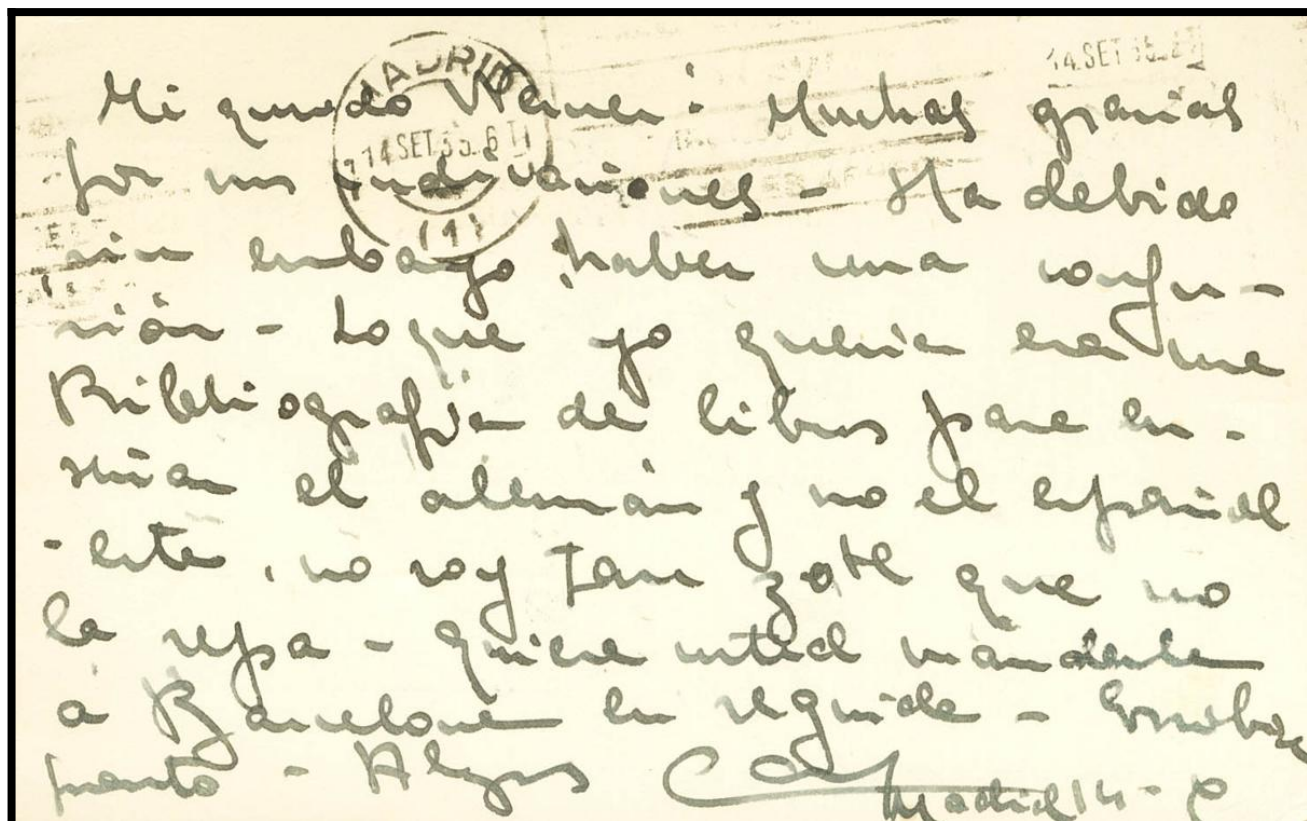 MADRID
14 SET 35. 6 T
(1)
14. SET 35.
Mi querido Werner: Muchas gracias
por sus indicaciones - Ha debido
sin embargo haber una confu-
sión - Lo que yo queria era una
Bibliografía de libros para en-
señar el alemán y no el español
- este, no soy tan zote que no
la sepa - Quiere usted mandarla
a Barcelona en seguida - Escribiré
pronto - Abzos
Madrid 14 -